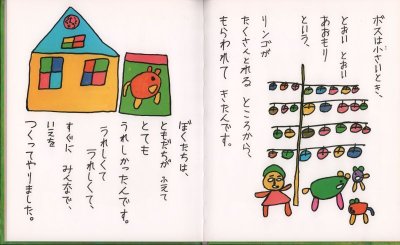 ボスは小さいとき、
とおい とおい
あおもり
という、
リンゴが
たくさんとれる ところから、
もらわれて きたんです。
ぼくたちは、
ともだちが ふえて
とても
うれしかったんです。
うれしくて
うれしくて、
すぐに みんなで、
いえを
つくってやりました。